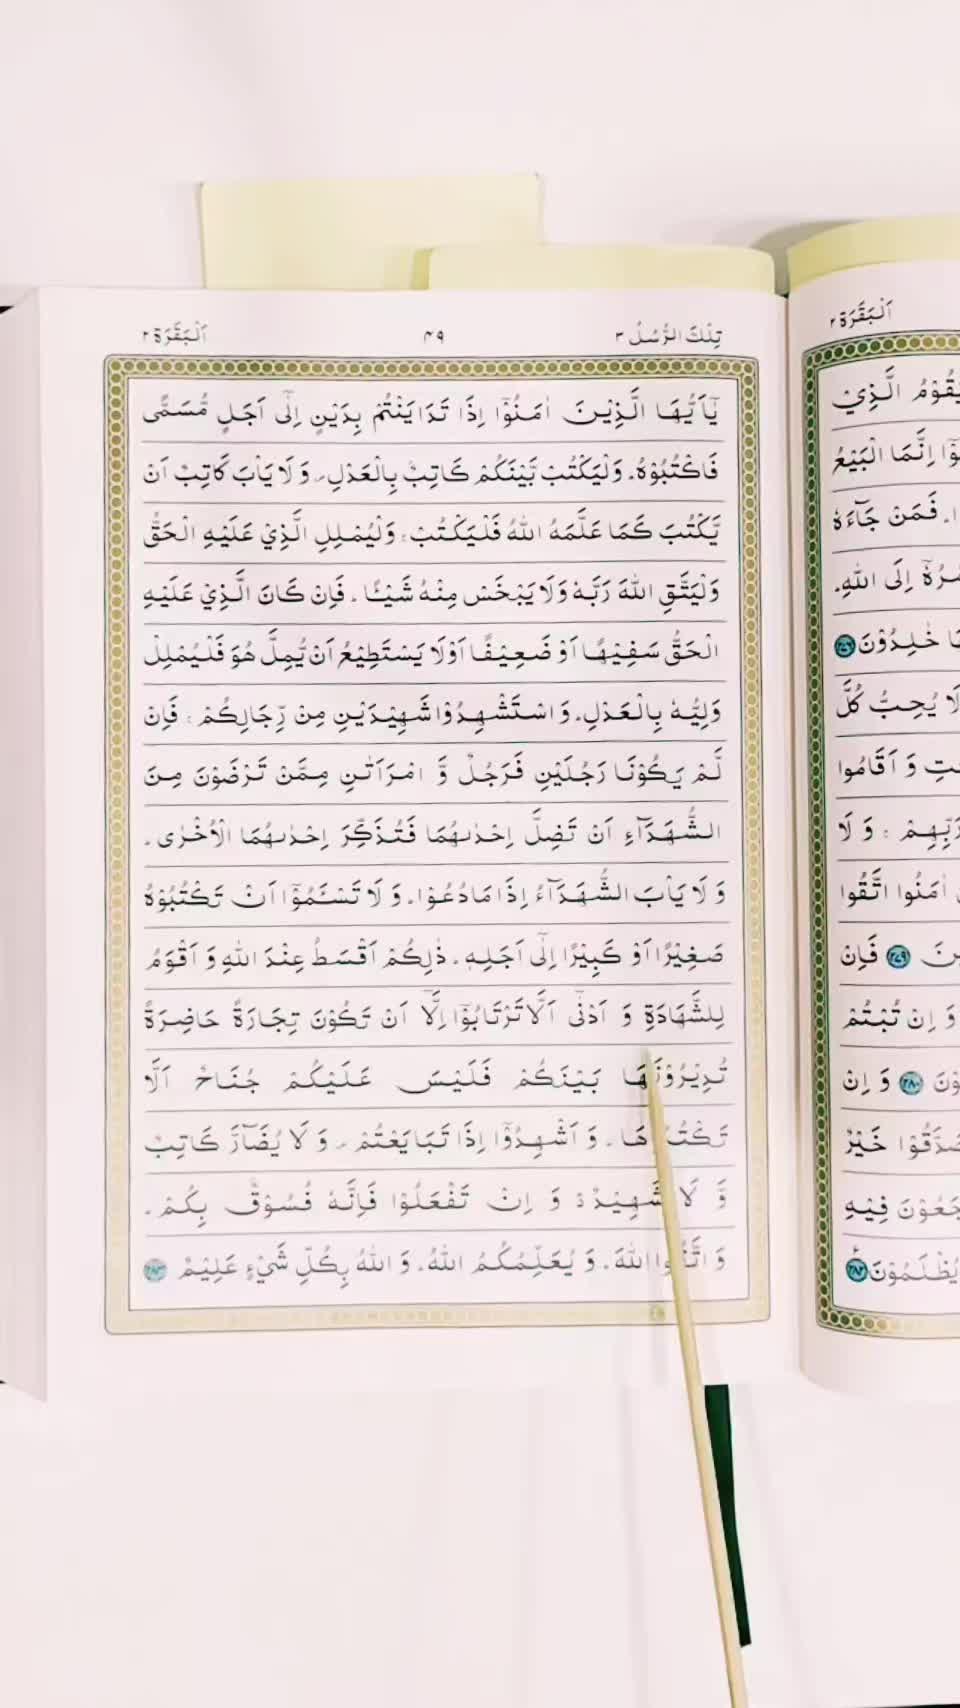 تِلْكَ الرُّسُلُ ٣
٤٩
اَلْبَقَرَة ٢
يٰٓاَيُّهَا الَّذِيْنَ اٰمَنُوْٓا اِذَا تَدَايَنْتُمْ بِدَيْنٍ اِلٰٓى اَجَلٍ مُّسَمًّى
فَاكْتُبُوْهُ۔ وَلْيَكْتُبْ بَّيْنَكُمْ كَاتِبٌۢ بِالْعَدْلِ۔ وَ لَا يَاْبَ كَاتِبٌ اَنْ
يَّكْتُبَ كَمَا عَلَّمَهُ اللّٰهُ فَلْيَكْتُبْ۔ وَلْيُمْلِلِ الَّذِيْ عَلَيْهِ الْحَقُّ
وَلْيَتَّقِ اللّٰهَ رَبَّهٗ وَلَا يَبْخَسْ مِنْهُ شَيْـًٔا۔ فَاِنْ كَانَ الَّذِيْ عَلَيْهِ
الْحَقُّ سَفِيْهًا اَوْ ضَعِيْفًا اَوْ لَا يَسْتَطِيْعُ اَنْ يُّمِلَّ هُوَ فَلْيُمْلِلْ
وَلِيُّهٗ بِالْعَدْلِ۔ وَ اسْتَشْهِدُوْا شَهِيْدَيْنِ مِنْ رِّجَالِكُمْ۔ فَاِنْ
لَّمْ يَكُوْنَا رَجُلَيْنِ فَرَجُلٌ وَّ امْرَاَتٰنِ مِمَّنْ تَرْضَوْنَ مِنَ
الشُّهَدَآءِ اَنْ تَضِلَّ اِحْدٰىهُمَا فَتُذَكِّرَ اِحْدٰىهُمَا الْاُخْرٰى۔
وَ لَا يَاْبَ الشُّهَدَآءُ اِذَا مَا دُعُوْا۔ وَ لَا تَسْـَٔمُوْٓا اَنْ تَكْتُبُوْهُ
صَغِيْرًا اَوْ كَبِيْرًا اِلٰٓى اَجَلِهٖ۔ ذٰلِكُمْ اَقْسَطُ عِنْدَ اللّٰهِ وَ اَقْوَمُ
لِلشَّهَادَةِ وَ اَدْنٰٓى اَلَّا تَرْتَابُوْٓا اِلَّآ اَنْ تَكُوْنَ تِجَارَةً حَاضِرَةً
تُدِيْرُوْنَهَا بَيْنَكُمْ فَلَيْسَ عَلَيْكُمْ جُنَاحٌ اَلَّا
تَكْتُبُوْهَا۔ وَ اَشْهِدُوْٓا اِذَا تَبَايَعْتُمْ۔ وَ لَا يُضَآرَّ كَاتِبٌ
وَّ لَا شَهِيْدٌ۔ وَ اِنْ تَفْعَلُوْا فَاِنَّهٗ فُسُوْقٌۢ بِكُمْ۔
وَ اتَّقُوا اللّٰهَ۔ وَ يُعَلِّمُكُمُ اللّٰهُ۔ وَ اللّٰهُ بِكُلِّ شَيْءٍ عَلِيْمٌ ٢٨٢
اَلْبَقَرَة ٢
يَقُوْمُ الَّذِيْ
اِنَّمَا الْبَيْعُ
فَمَنْ جَآءَهٗ
اِلَى اللّٰهِ۔
خٰلِدُوْنَ
لَا يُحِبُّ كُلَّ
وَ اَقَامُوا
رَبِّهِمْ۔ وَ لَا
اٰمَنُوا اتَّقُوا
٢٧٨ فَاِنْ
وَ اِنْ تُبْتُمْ
٢٧٩ وَ اِنْ
خَيْرٌ
فِيْهِ
يُظْلَمُوْنَ ٢٨١